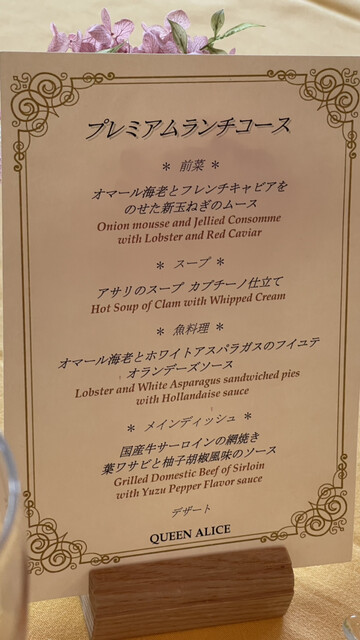 プレミアムランチコース
＊ 前菜 ＊
オマール海老とフレンチキャビアを
のせた新玉ねぎのムース
Onion mousse and Jellied Consomme
with Lobster and Red Caviar
＊ スープ ＊
アサリのスープ カプチーノ仕立て
Hot Soup of Clam with Whipped Cream
＊ 魚料理 ＊
オマール海老とホワイトアスパラガスのフイユテ
オランデーズソース
Lobster and White Asparagus sandwiched pies
with Hollandaise sauce
＊ メインディッシュ ＊
国産牛サーロインの網焼き
葉ワサビと柚子胡椒風味のソース
Grilled Domestic Beef of Sirloin
with Yuzu Pepper Flavor sauce
デザート
QUEEN ALICE